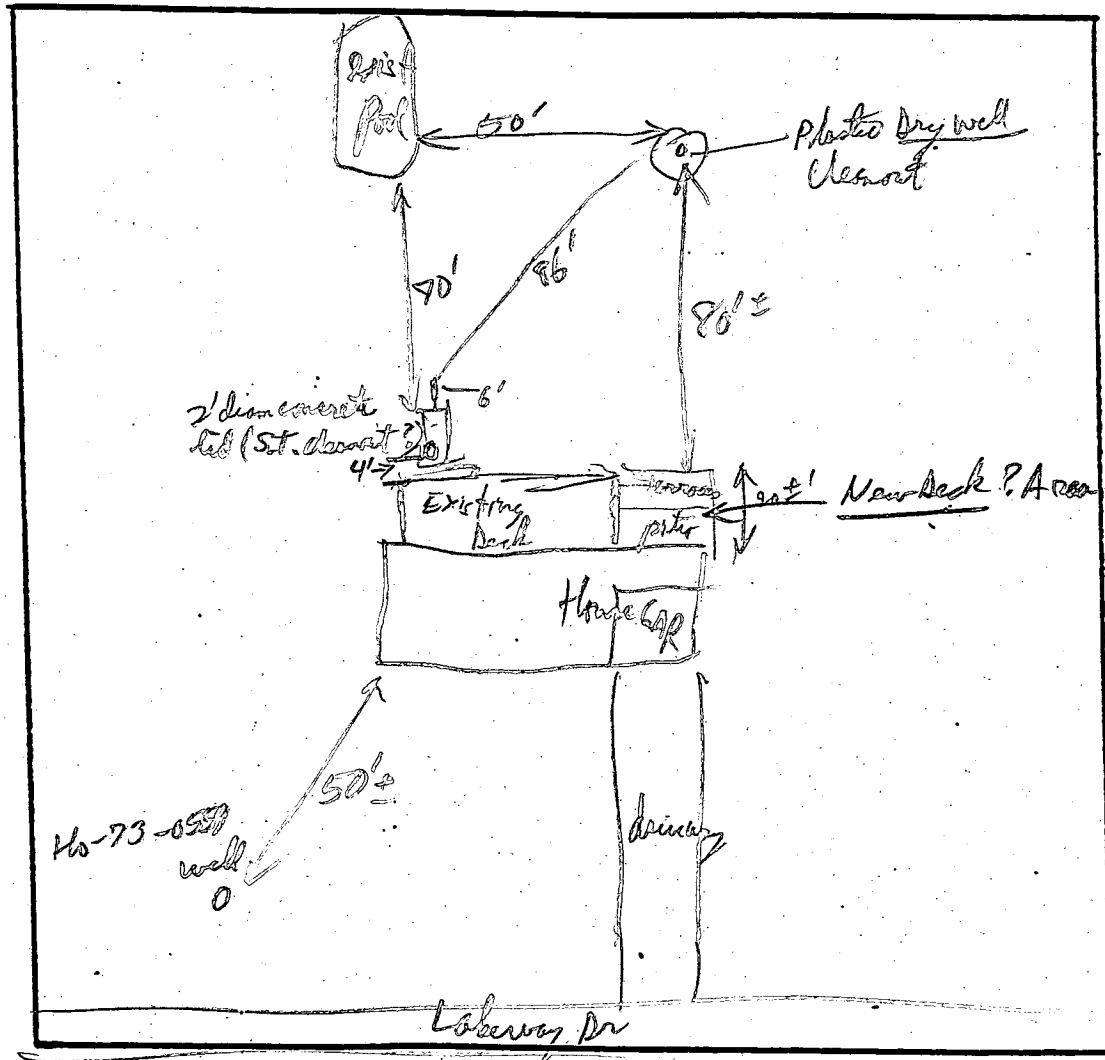 Exist
Pool
50'
Plastic Dry Well
Cleanout
86'
80' ±
6'
2' diam concrete
lid (S.T. cleanout?)
4'
Existing
Deck
patio
New Deck ? Area
House GAR
50' ±
well
O
driveway
Lakeway Dr